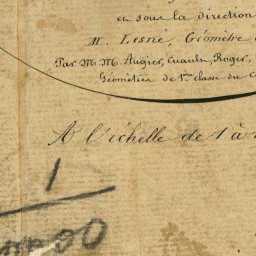 et sous la direction
M. Lesné, Géomètre
Par M.M. Augier, Roger,
Géomètres de 1re classe du C
A l'échelle de 1 à
1